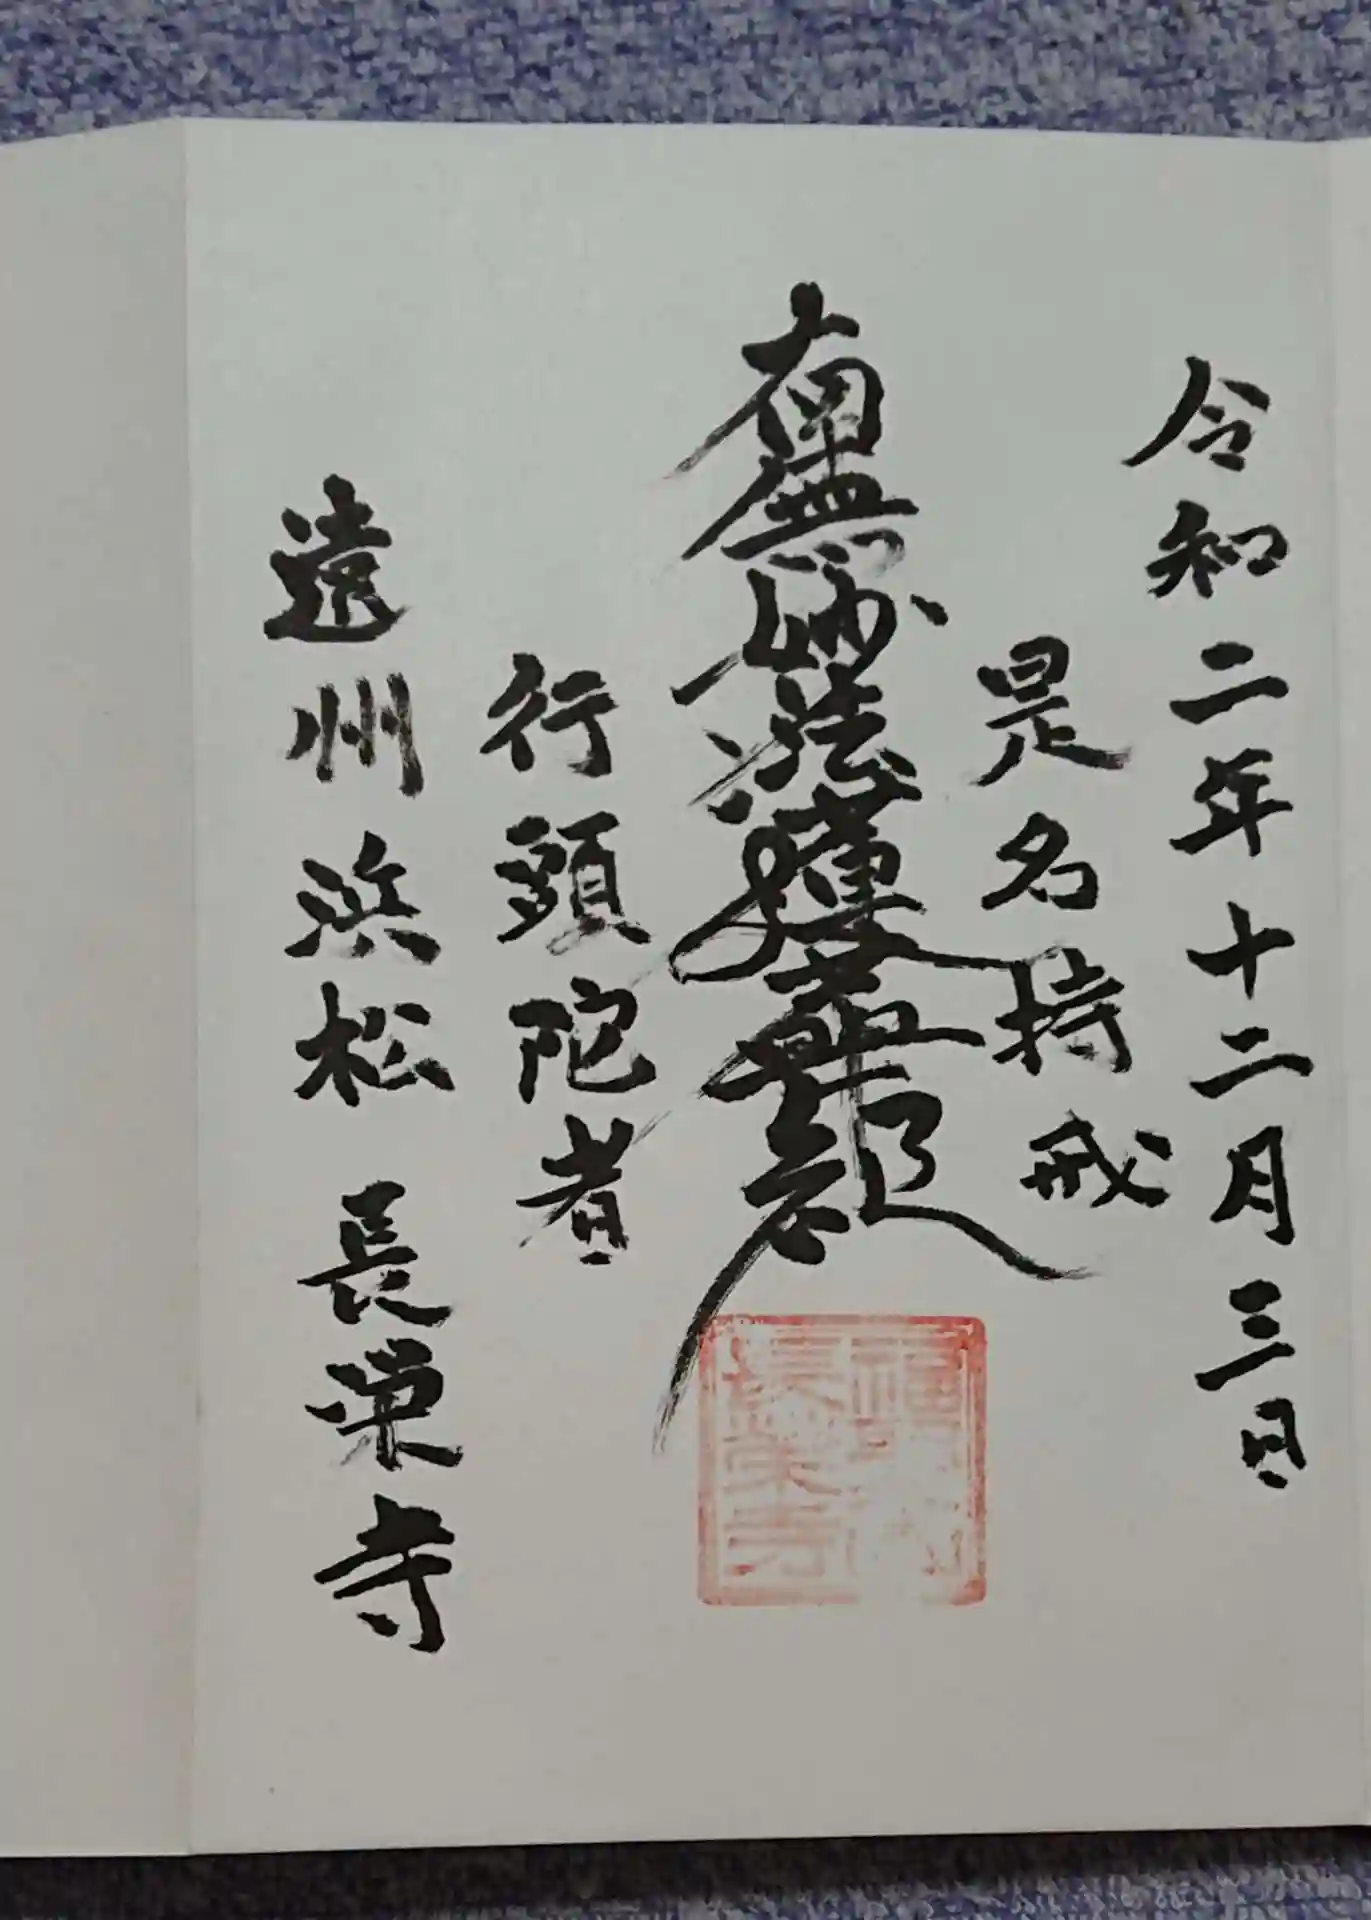 令和二年十二月三日
是名持戒
南無妙法蓮華経
行頭陀者
遠州浜松 長栄寺
長栄寺